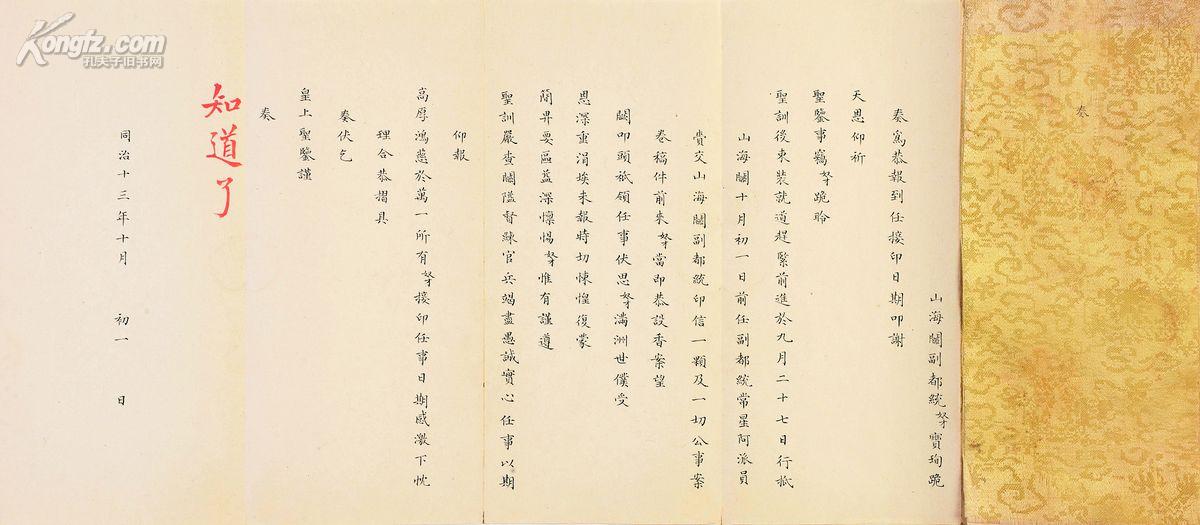 奏
山海關副都統奴才寶珣跪
奏為恭報到任接印日期叩謝
天恩仰祈
聖鑒事竊奴才跪聆
聖訓後束裝就道趕緊前進於九月二十七日行抵
山海關十月初一日前任副都統常星阿派員
賫交山海關副都統印信一顆及一切公事案
卷稿件前來奴才當即恭設香案望
闕叩頭祇領任事伏思奴才滿洲世僕受
恩深重涓埃未報時切悚惶復蒙
簡畀要區益深懍惕奴才惟有謹遵
聖訓嚴查關隘督練官兵竭盡愚誠實心任事以期
仰報
高厚鴻慈於萬一所有奴才接印任事日期感激下忱
理合恭摺具
奏伏乞
皇上聖鑒謹
奏
知道了
同治十三年十月 初一 日
Kongfz.com
孔夫子旧书网